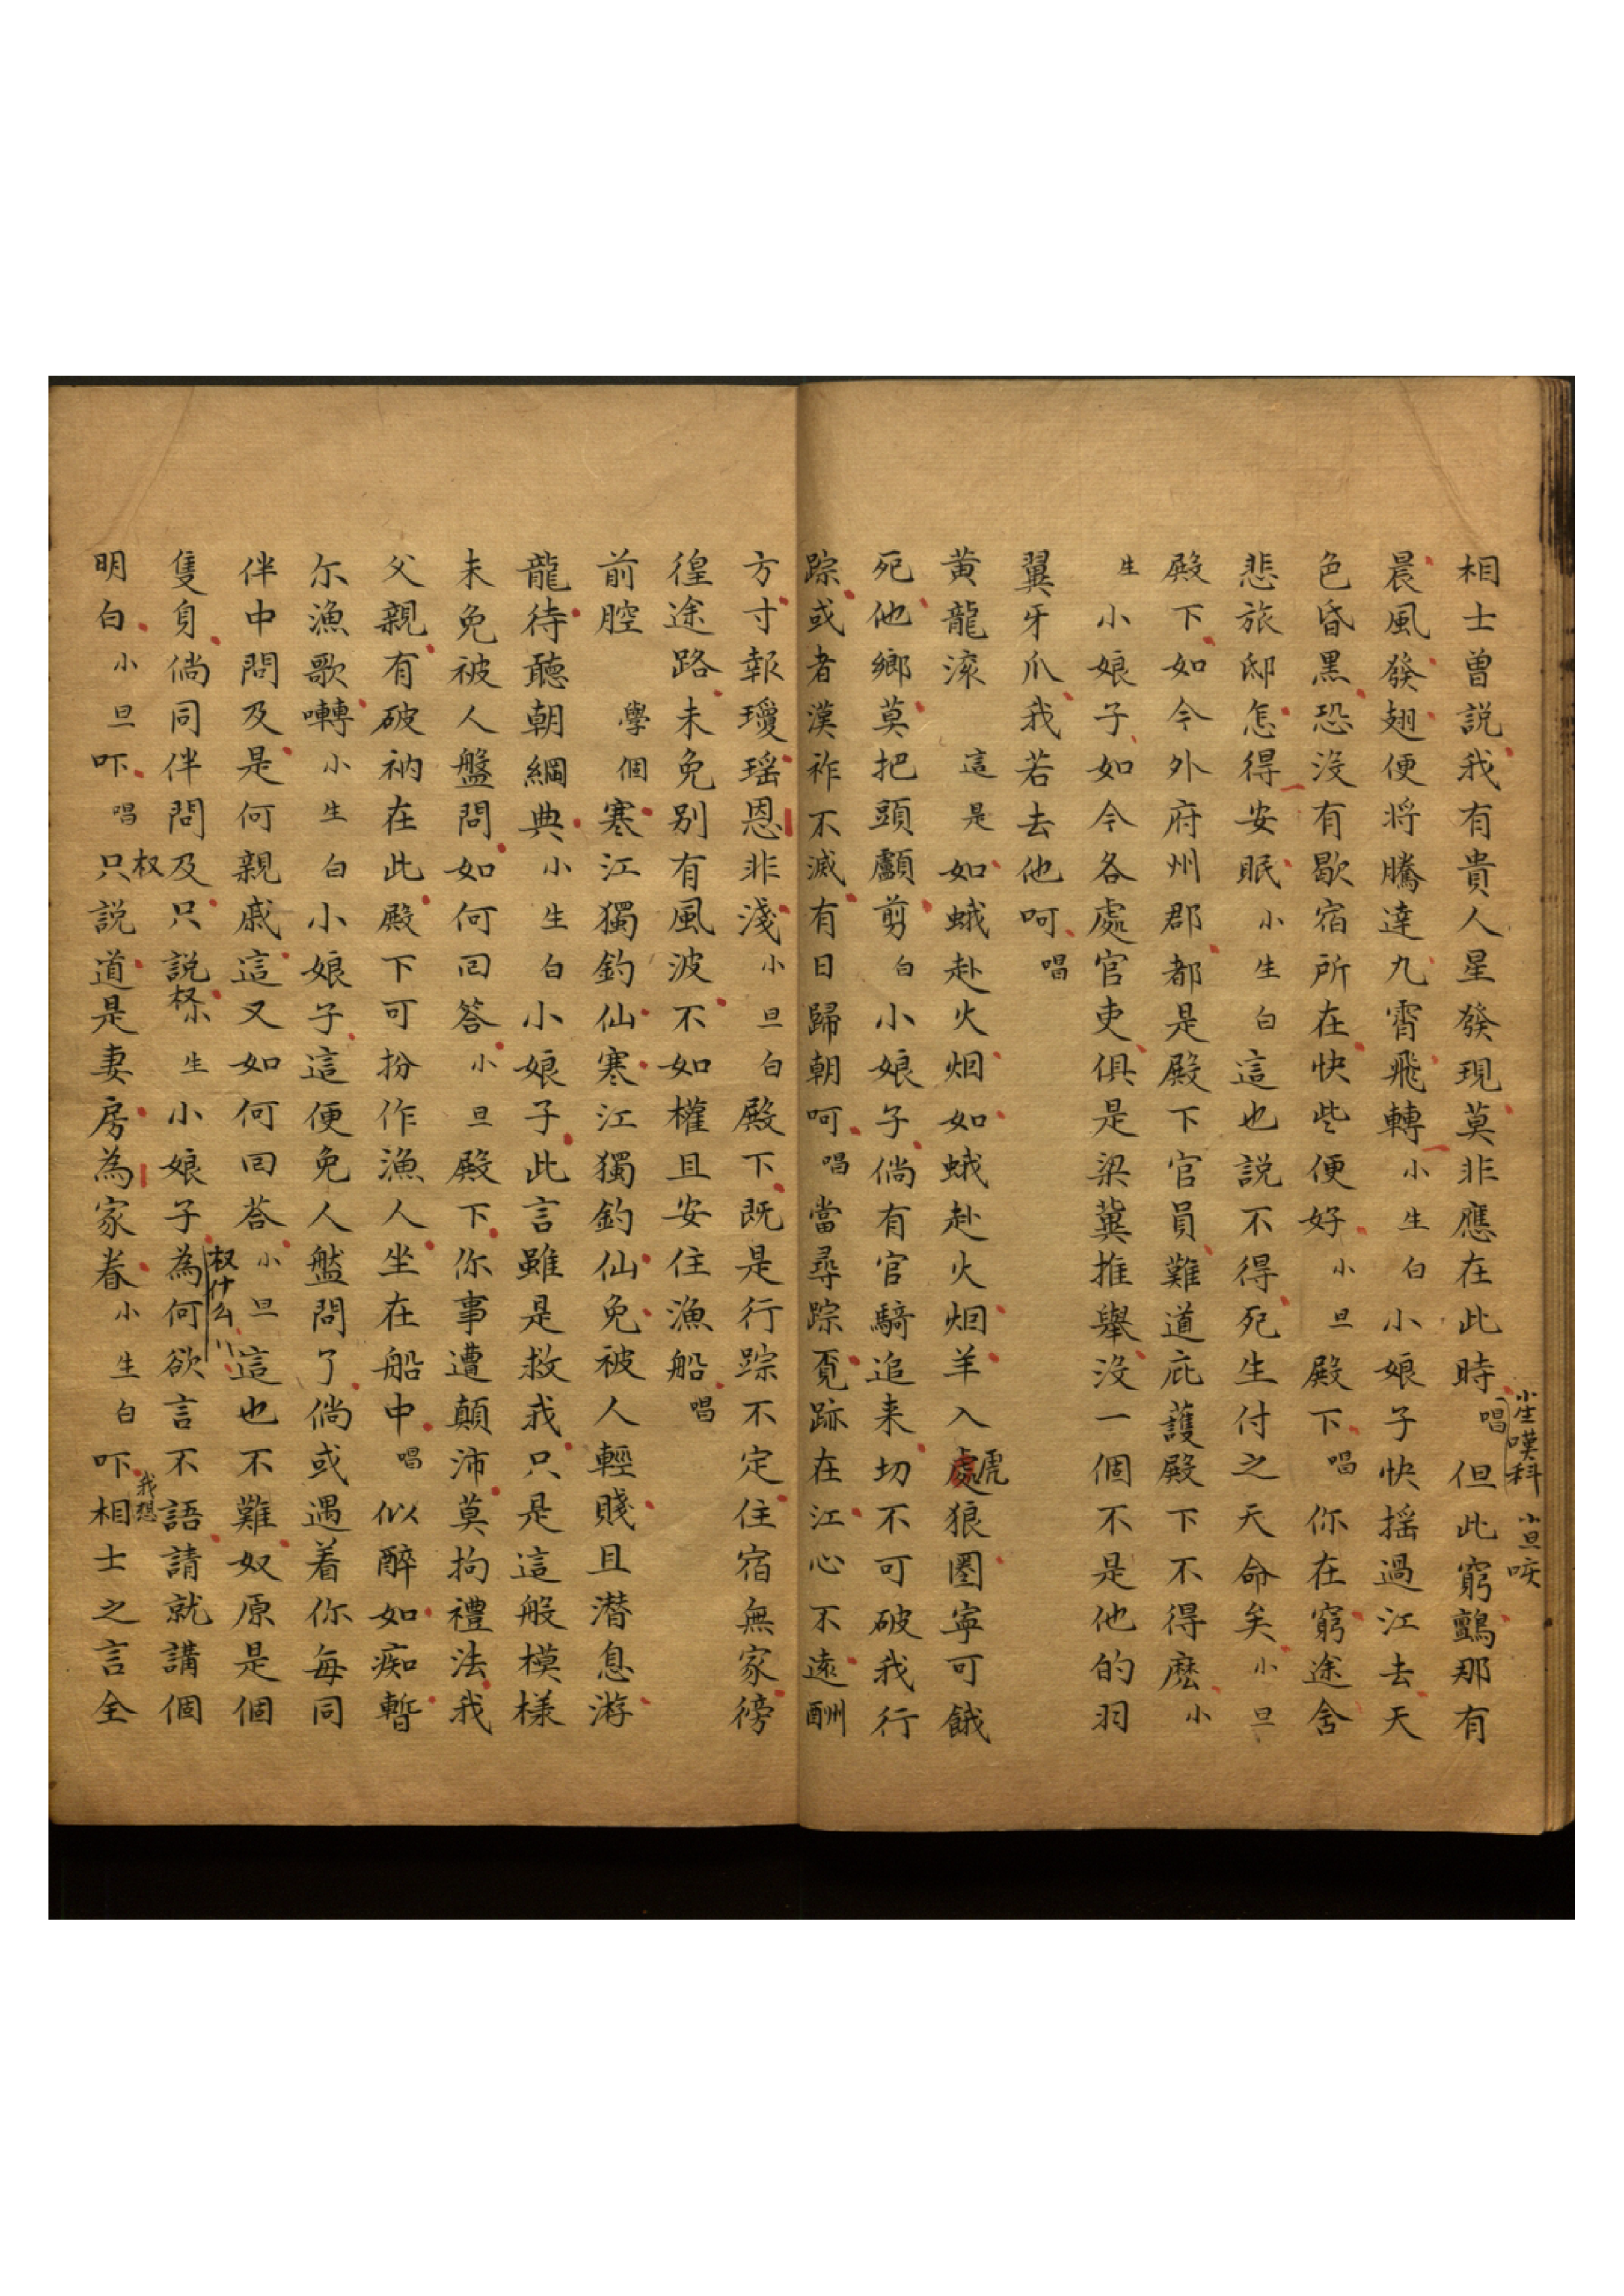 相士曾説我有貴人星發現莫非應在此時唱但此窮鸇那有
小生嘆科 小旦咳
晨風發翅便將騰達九霄飛轉小生白小娘子快摇過江去天
色昏黑恐沒有歇宿所在快些便好小旦殿下唱你在窮途舍
悲旅邸怎得安眠小生白這也説不得死生付之天命矣小旦
殿下如今外府州郡都是殿下官員難道庇護殿下不得麽小
生小娘子如今各處官吏俱是梁冀推舉沒一個不是他的羽
翼牙爪我若去他呵唱
黄龍滚這是如蛾赴火烟如蛾赴火烟羊入處狼圈寕可餓
虎
死他鄉莫把頭顱剪白小娘子倘有官騎追来切不可破我行
踪或者漢祚不滅有日歸朝呵唱當尋踪覔跡在江心不遠酬
方寸報瓊瑶恩非淺小旦白殿下既是行踪不定住宿無家徬
徨途路未免别有風波不如權且安住漁船唱
前腔學個寒江獨釣仙寒江獨釣仙免被人輕賤且潜息游
龍待聽朝綱典小生白小娘子此言雖是救我只是這般模樣
未免被人盤問如何回答小旦殿下你事遭顛沛莫拘禮法我
父親有破衲在此殿下可扮作漁人坐在船中唱似醉如痴暫
尔漁歌囀小生白小娘子這便免人盤問了倘或遇着你每同
伴中問及是何親戚這又如何回荅小旦這也不難奴原是個
权什么
隻身倘同伴問及只説权小生小娘子為何欲言不語請就講個
明白小旦吓唱只权説道是妻房為家眷小生白吓我想相士之言全